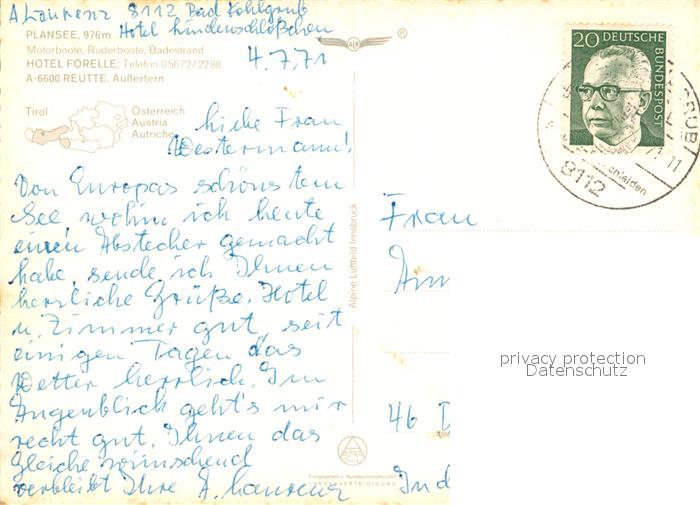 A Laurenz 8112 Bad Kohlgrub
Hotel Lindenschlößchen
4.7.71
PLANSEE, 976m
Motorboote, Ruderboote, Badestrand
HOTEL FORELLE; Telefon 05672/2288
A-6600 REUTTE, Außerfern
Tirol
Österreich
Austria
Autriche
Liebe Frau
Westermann!
Von Europas schönstem
See wohin ich heute
einen Abstecher gemacht
habe, sende ich Ihnen
herzliche Grüße. Hotel
u. Zimmer gut, seit
einigen Tagen das
Wetter herrlich. Im
Augenblick geht's mir
recht gut. Ihnen das
gleiche wünschend
verbleibt Ihre A. Laurenz
Alpine Luftbild Innsbruck
Freigegeben v. Bundesministerium f.
LANDESVERTEIDIGUNG
®
20 DEUTSCHE
BUNDESPOST
8112
Frau
46
Ind
privacy protection
Datenschutz